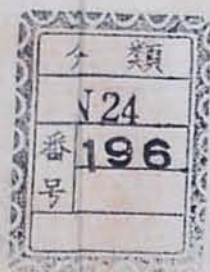 分類
N24
番号
196